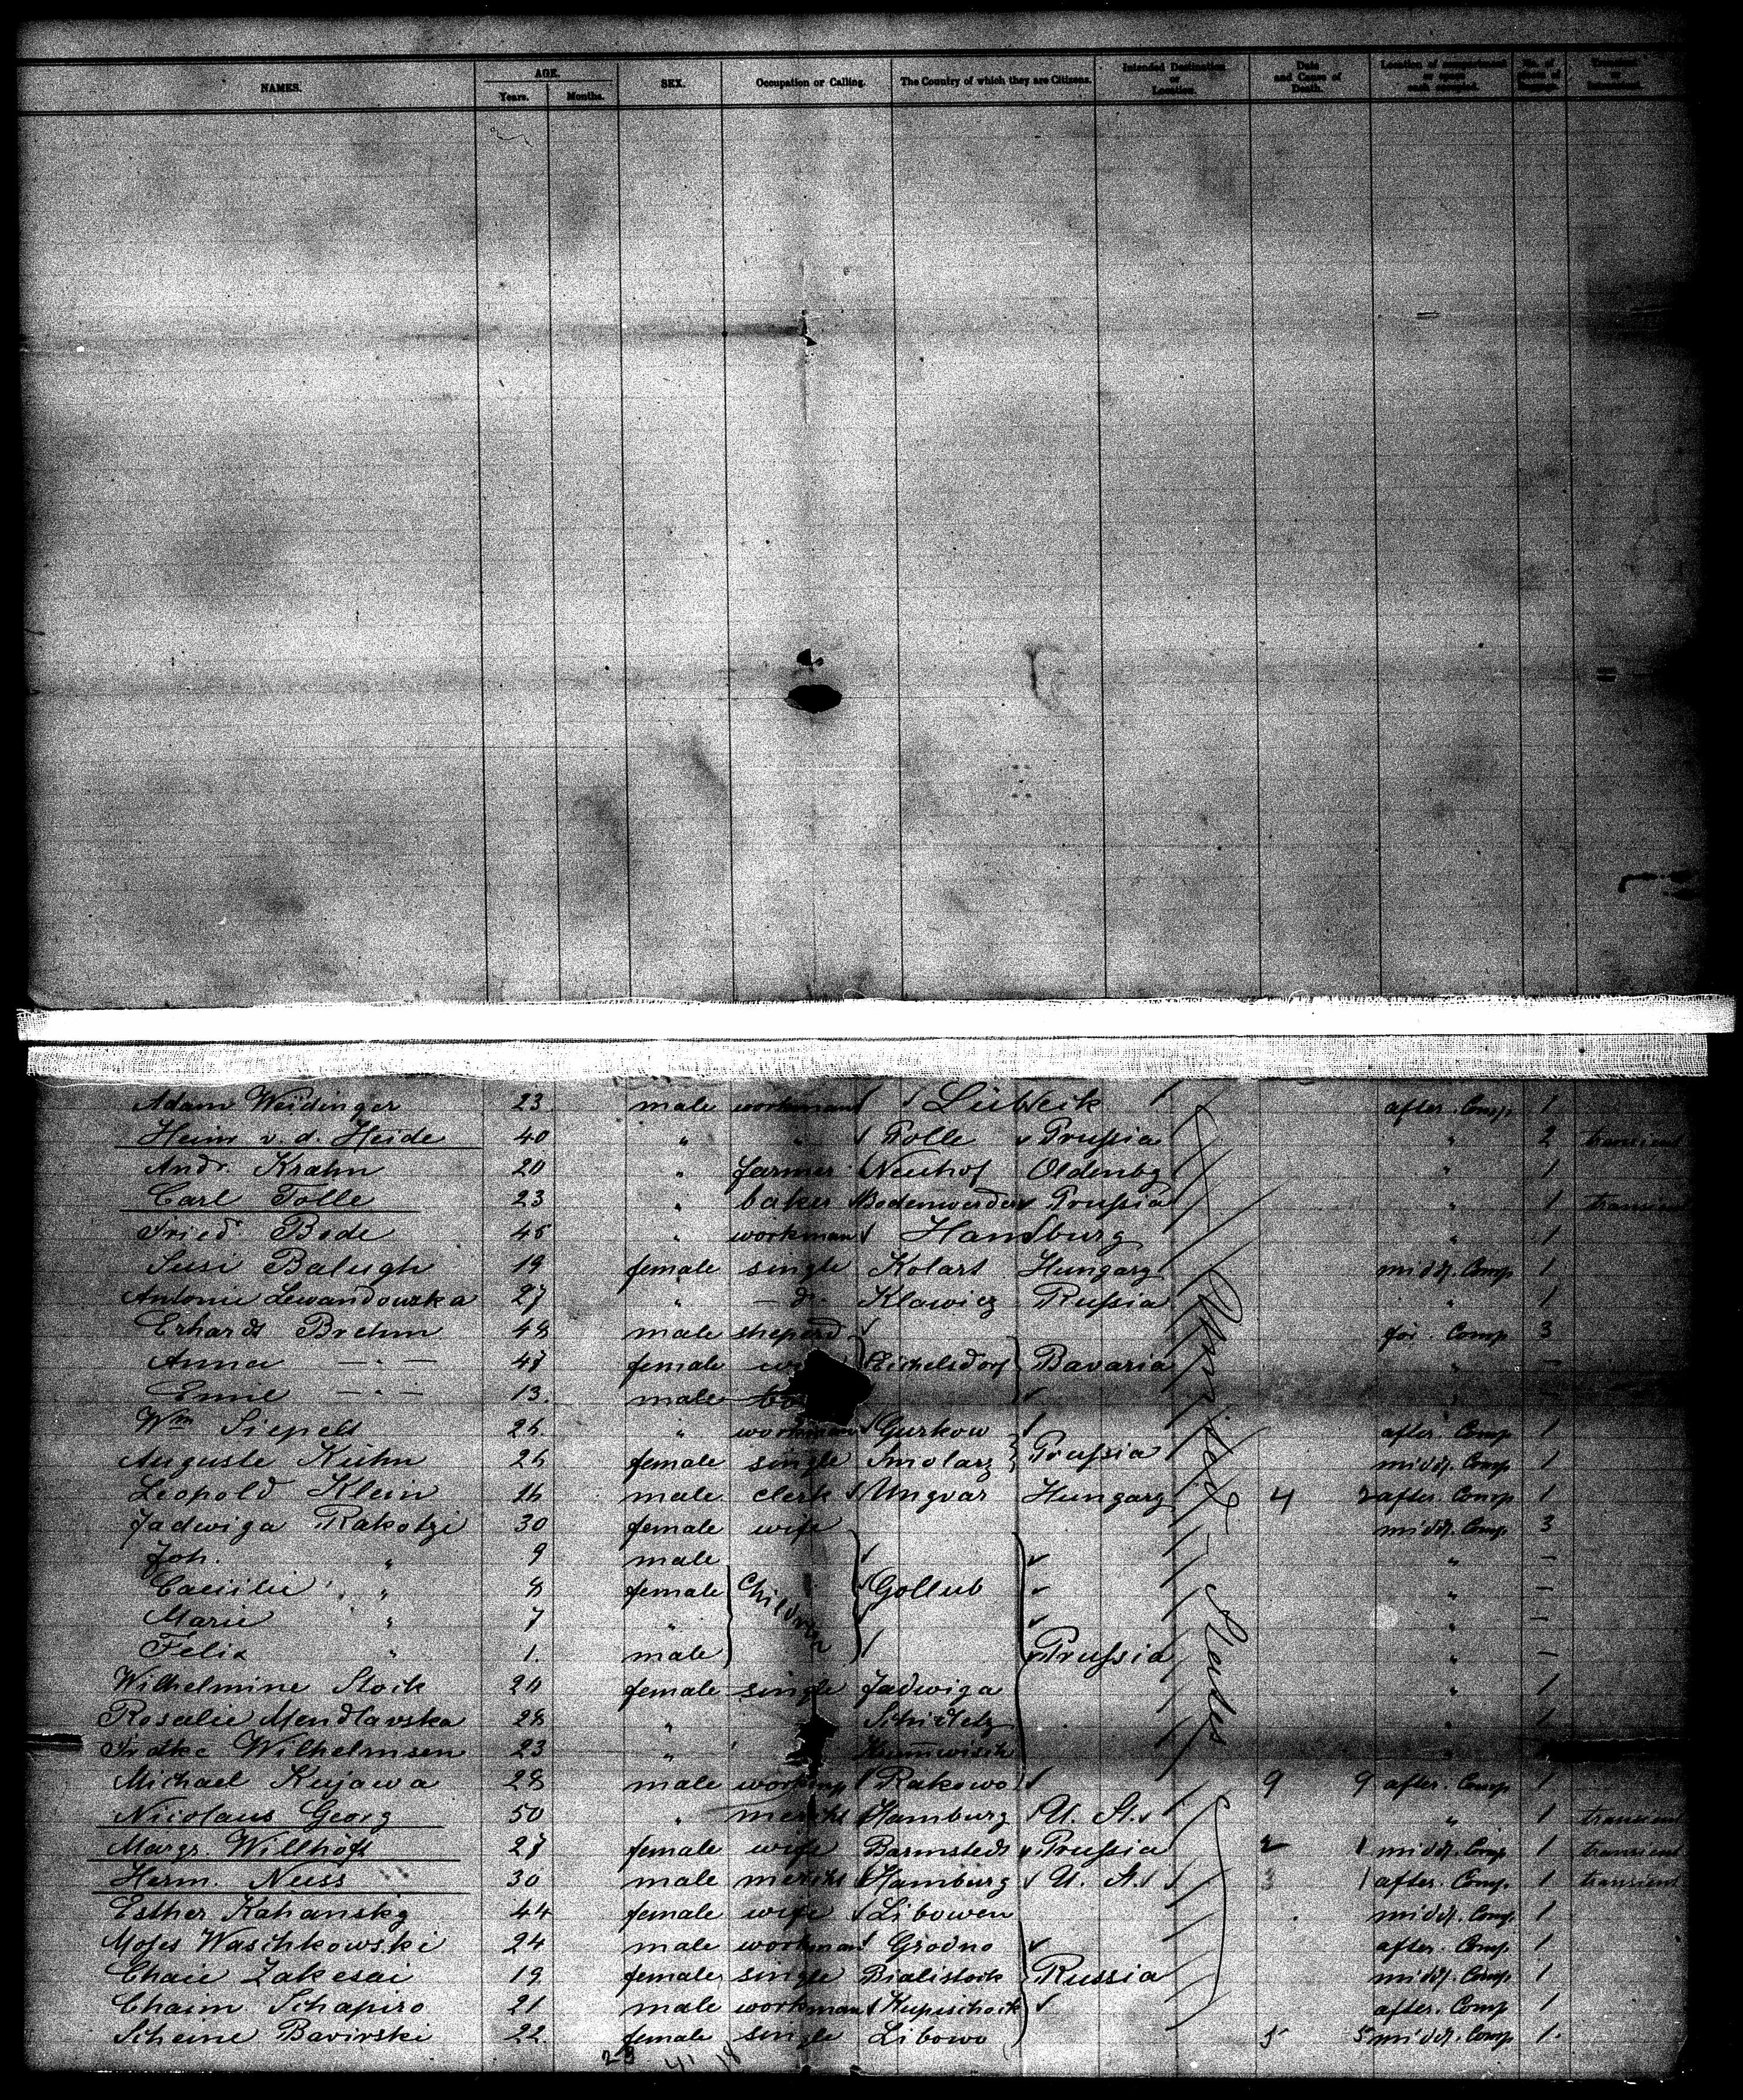 NAMES. AGE. Years. Months. SEX. Occupation or Calling. The Country of which they are Citizens. Intended Destination or Location. Date and Cause of Death. Location of compartment or space each occupied. No. of pieces of
Adam Weidinger 23 male workman Lübeck after. Comp 1
Heinr v. d. Heide 40 " " Polle Prußia " 2 transient
Andr. Krahn 20 " farmer Neuhof Oldenbg " 1
Carl Tolle 23 " baker Bodenwerder Prußia " 1 transient
Fried. Bode 45 " workman Hamburg " 1
Susi Balugh 19 female single Kolart Hungary midd. Comp 1
Antonie Lewandowska 27 " — do. Klawicz Rußia " 1
Erhardt Brehm 48 male sheperd for. Comp 3
Anna — " — 47 female Eichelsdorf Bavaria " —
Emil — " — 13. male " —
Wm Siepelt 26 " workman Gurkow after Comp 1
Auguste Kühn 26 female single Smolarz Prußia midd. Comp 1
Leopold Klein 16 male clerk Ungvar Hungary 4 after. Comp 1
Jadwiga Rakotzi 30 female wife midd. Comp 3
Joh. " 9 male " —
Caecilie " 8 female Children Gollub " —
Marie " 7 " " —
Felix " 1. male Prußia " —
Wilhelmine Stock 20 female single Jadwiga " 1
Rosalie Mendlavska 28 " " 1
Wilhelmsen 23 " "
Michael Kujawa 28 male Rakowo 9 9 after. Comp 1
Nicolaus Georg 50 " mercht Hamburg U. St. " 1 transient
Margr. Willhöft 27 female wife Barmstedt Prußia 2 1 midd. Comp 1 transient
Herm. Neuss 30 male mercht Hamburg U. St. 3 1 after. Comp. 1 transient
Esther Kahansky 44 female wife Libowen midd. Comp. 1
Moses Waschkowski 24 male workman Grodno after. Comp 1
Chaie Zakesai 19 female single Bialistock Russia midd. Comp 1
Chaim Schapiro 21 male workman Kupischock after. Comp 1
Scheine Bavirski 22. female single Libowo 5 5 midd. Comp 1.
United States